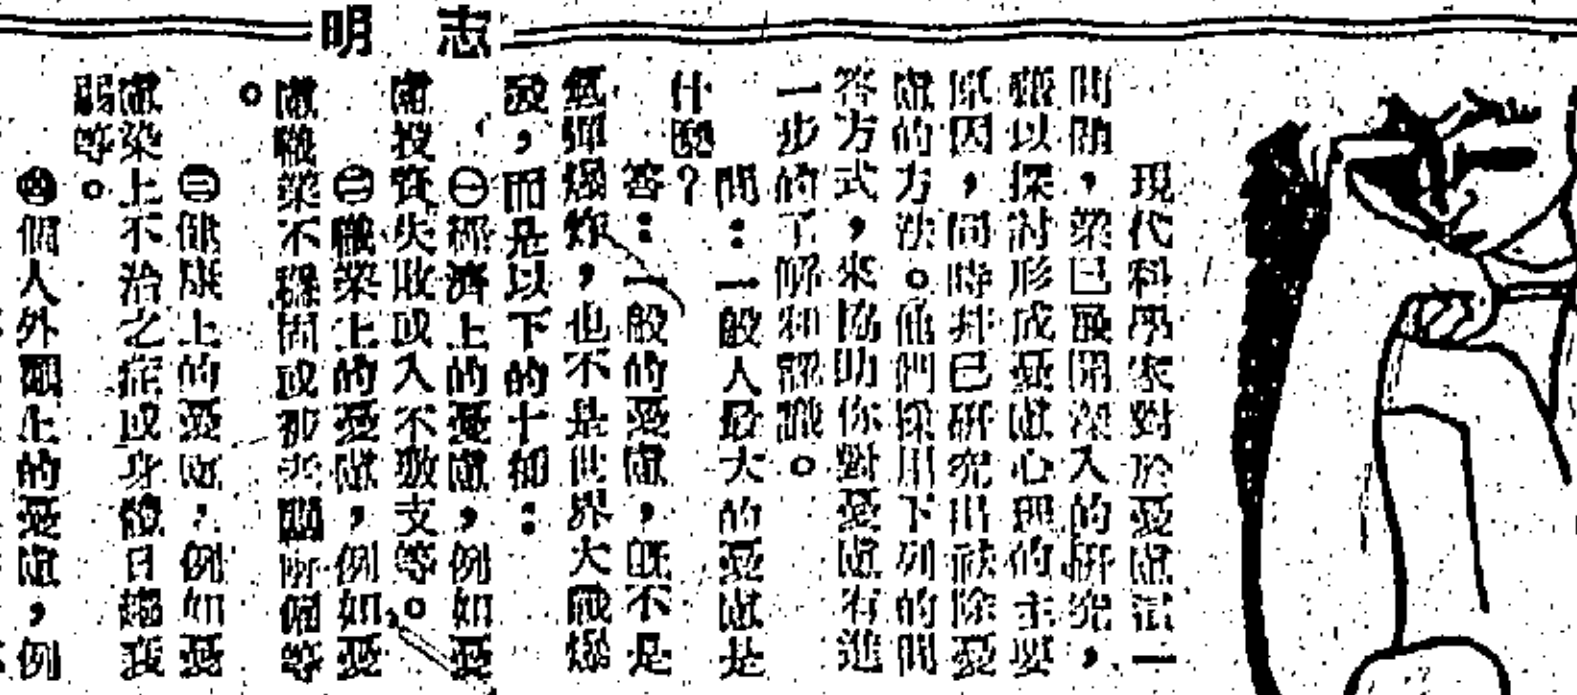 志明
現代科學家對於憂慮這一
問題，業已最開深入的研究，
藉以探討形成憂慮心理的主要
原因，同時并已研究出祓除憂
慮的方法。他們採用下列的問
答方式，來協助你對憂慮有進
一步的了解和認識。
問：一般人最大的憂慮是
什麼？
答：一般的憂慮，旣不是
氫彈爆炸，也不是世界大戰爆
發，而是以下的十種：
㊀經濟上的憂慮，例如憂
慮投資失敗或入不敷支等。
㊁職業上的憂慮，例如憂
慮職業不穩固或被老闆所開等
。
㊂健康上的憂慮，例如憂
慮染上不治之症或身體日趨衰
弱等。
㊃個人外觀上的憂慮，例